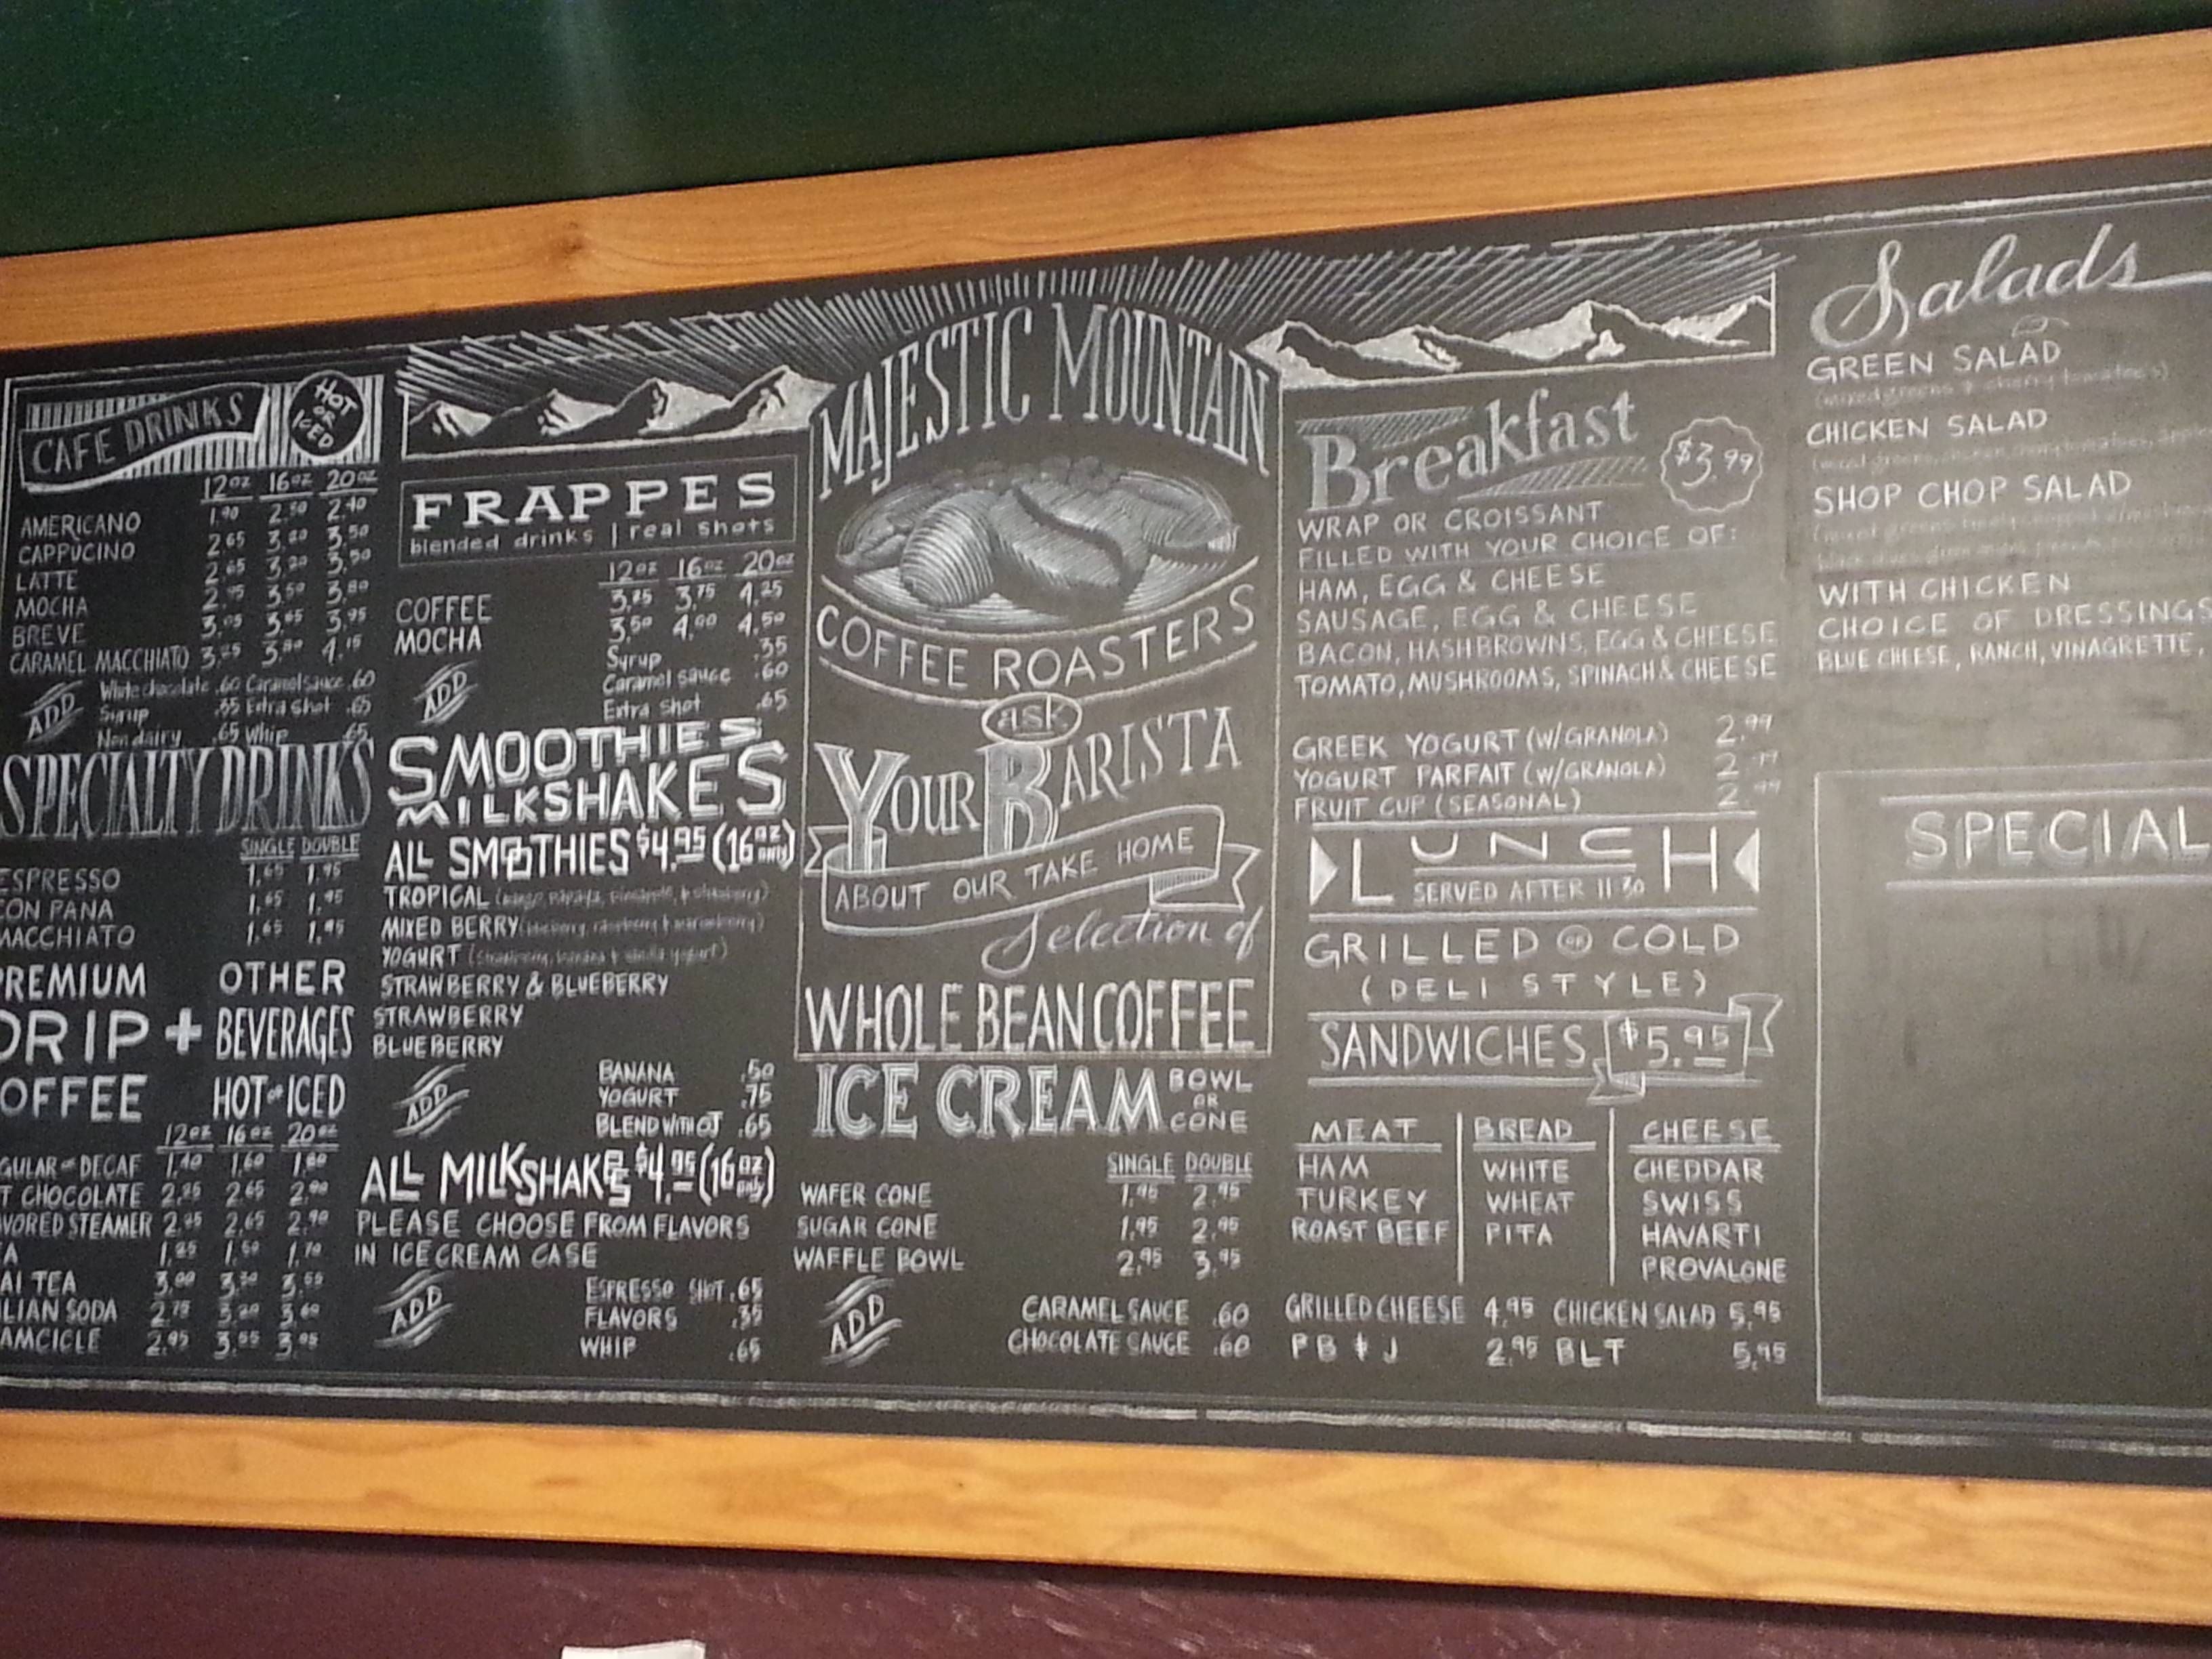 CAFE DRINKS
HOT OR ICED
12oz 16oz 20oz
AMERICANO 1.90 2.40
CAPPUCINO 2.65 3.20 3.50
LATTE 2.65 3.20 3.50
MOCHA 2.95 3.50 3.80
BREVE 3.05 3.65 3.95
CARAMEL MACCHIATO 3.25 3.80 4.15
ADD
White chocolate .60 Caramel sauce .60
Syrup .35 Extra shot .65
Non dairy .65 Whip .65
SPECIALTY DRINKS
SINGLE DOUBLE
ESPRESSO 1.65 1.95
CON PANA 1.65 1.95
MACCHIATO 1.65 1.95
PREMIUM
DRIP +
OFFEE
OTHER
BEVERAGES
HOT or ICED
12oz 16oz 20oz
GULAR or DECAF 1.40 1.60 1.80
T CHOCOLATE 2.25 2.65 2.90
VORED STEAMER 2.25 2.65 2.90
A 1.25 1.50 1.70
AI TEA 3.00 3.30 3.55
LIAN SODA 2.75 3.20 3.60
AMCICLE 2.95 3.55 3.95
FRAPPES
blended drinks | real shots
12oz 16oz 20oz
COFFEE 3.25 3.75 4.25
MOCHA 3.50 4.00 4.50
ADD
Syrup .35
Caramel sauce .60
Extra shot .65
SMOOTHIES
MILKSHAKES
ALL SMOOTHIES $4.95 (16oz only)
TROPICAL (mango, papaya, pineapple, & strawberry)
MIXED BERRY (blueberry, raspberry & marionberry)
YOGURT (strawberry, banana & vanilla yogurt)
STRAWBERRY & BLUEBERRY
STRAWBERRY
BLUEBERRY
ADD
BANANA .50
YOGURT .75
BLEND WITH OJ .65
ALL MILKSHAKES $4.95 (16oz only)
PLEASE CHOOSE FROM FLAVORS
IN ICE CREAM CASE
ADD
ESPRESSO SHOT .65
FLAVORS .35
WHIP .65
MAJESTIC MOUNTAIN
COFFEE ROASTERS
ask
YOUR BARISTA
ABOUT OUR TAKE HOME
Selection of
WHOLE BEAN COFFEE
ICE CREAM BOWL OR CONE
SINGLE DOUBLE
WAFER CONE 1.95 2.95
SUGAR CONE 1.95 2.95
WAFFLE BOWL 2.95 3.95
ADD
CARAMEL SAUCE .60
CHOCOLATE SAUCE .60
Breakfast $3.99
WRAP OR CROISSANT
FILLED WITH YOUR CHOICE OF:
HAM, EGG & CHEESE
SAUSAGE, EGG & CHEESE
BACON, HASHBROWNS, EGG & CHEESE
TOMATO, MUSHROOMS, SPINACH & CHEESE
GREEK YOGURT (W/GRANOLA) 2.99
YOGURT PARFAIT (W/GRANOLA) 2.99
FRUIT CUP (SEASONAL) 2.99
LUNCH
SERVED AFTER 11:30
GRILLED OR COLD
(DELI STYLE)
SANDWICHES $5.95
MEAT BREAD CHEESE
HAM WHITE CHEDDAR
TURKEY WHEAT SWISS
ROAST BEEF PITA HAVARTI
PROVALONE
GRILLED CHEESE 4.95 CHICKEN SALAD 5.95
PB & J 2.95 BLT 5.95
Salads
GREEN SALAD
(mixed greens & cherry tomatoes)
CHICKEN SALAD
SHOP CHOP SALAD
WITH CHICKEN
CHOICE OF DRESSINGS
BLUE CHEESE, RANCH, VINAGRETTE,
SPECIAL